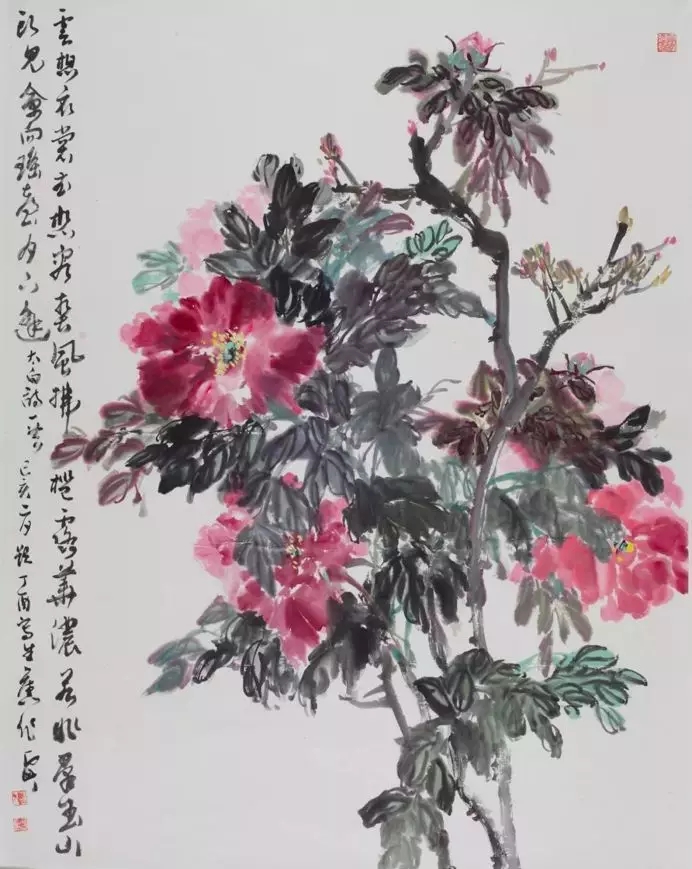 雲想衣裳花想容春風拂檻露華濃若非羣玉山
頭見會向瑤臺月下逢 太白詩一首 己亥二月題丁酉寫生舊作